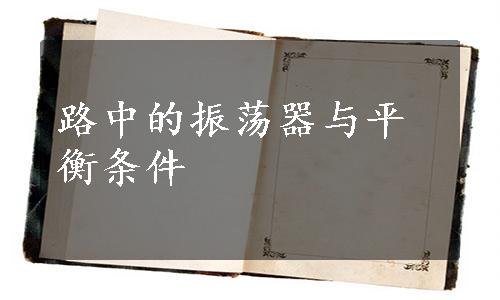 路中的振荡器与平
衡条件